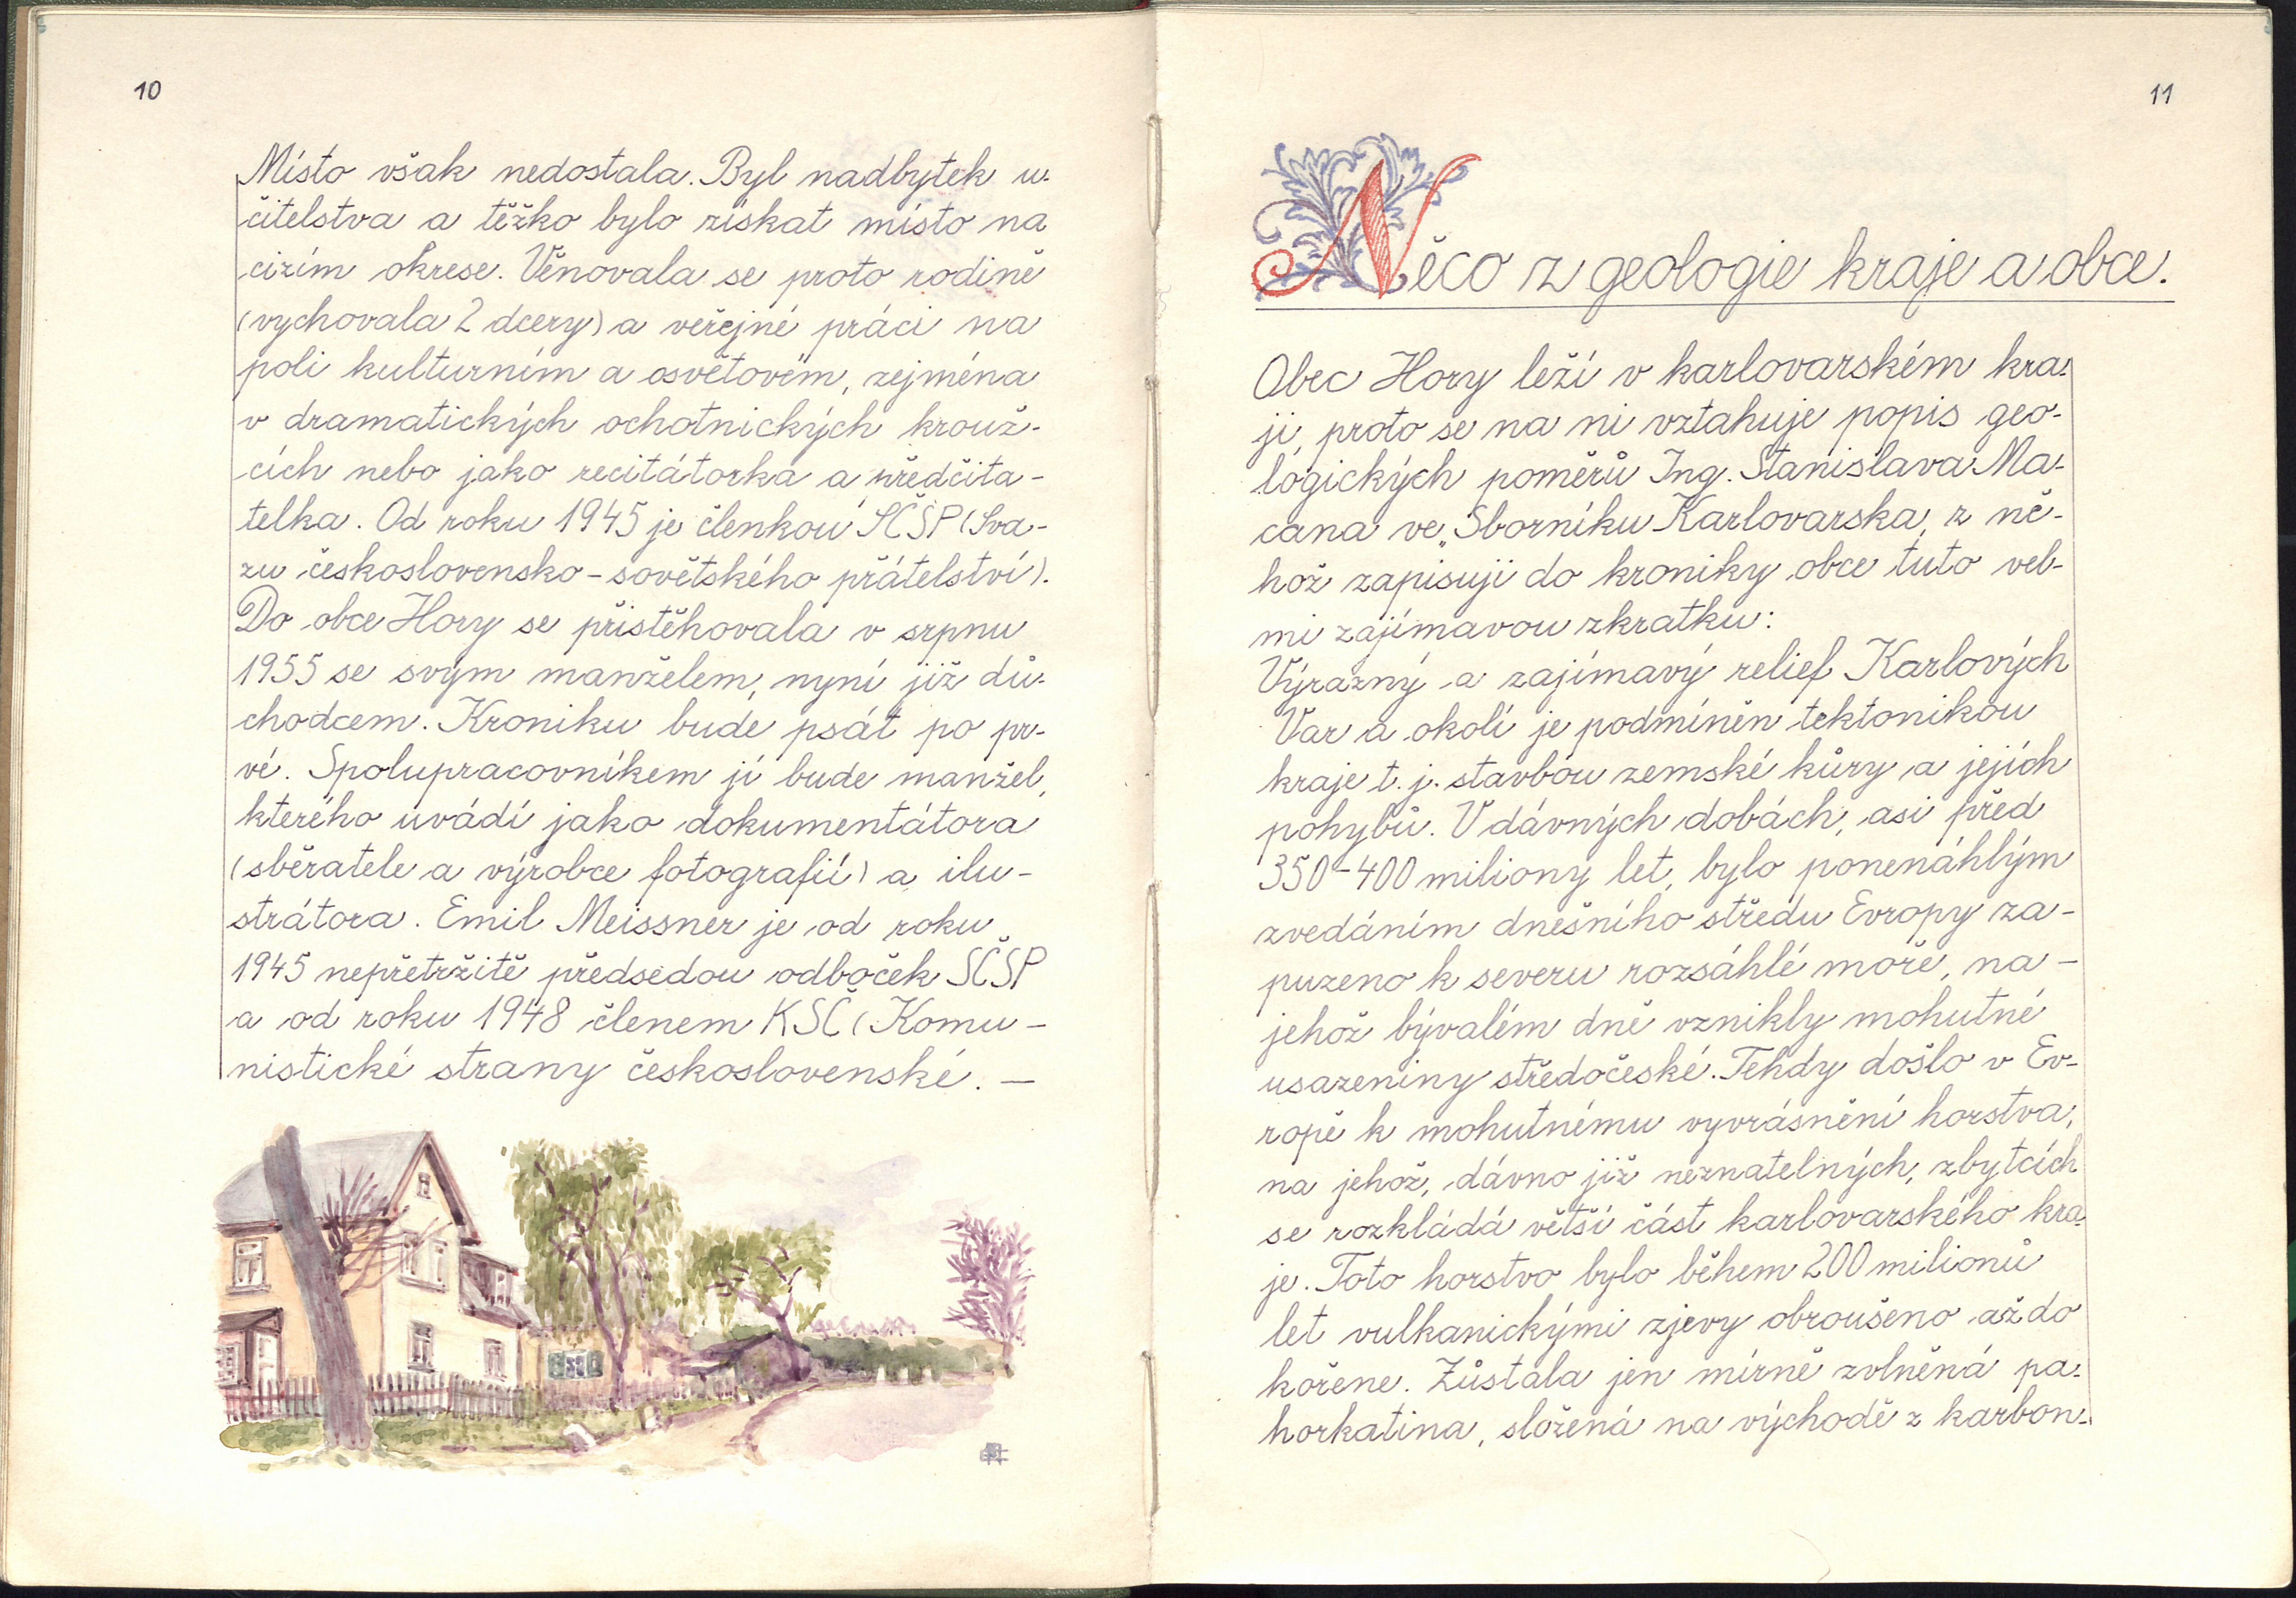 10
Místo však nedostala. Byl nadbytek u-
čitelstva a těžko bylo získat místo na
cizím okrese. Věnovala se proto rodině
(vychovala 2 dcery) a veřejné práci na
poli kulturním a osvětovém, zejména
v dramatických ochotnických krouž-
cích nebo jako recitátorka a předčita-
telka. Od roku 1945 je členkou SČSP (Sva-
zu československo-sovětského přátelství).
Do obce Hory se přistěhovala v srpnu
1955 se svým manželem, nyní již dů-
chodcem. Kroniku bude psát po pr-
vé. Spolupracovníkem jí bude manžel,
kterého uvádí jako dokumentátora
(sběratele a výrobce fotografií) a ilu-
strátora. Emil Meissner je od roku
1945 nepřetržitě předsedou odboček SČSP
a od roku 1948 členem KSČ (Komu-
nistické strany československé. —
11
Něco z geologie kraje a obce.
Obec Hory leží v karlovarském kra-
ji, proto se na ni vztahuje popis geo-
logických poměrů Ing. Stanislava Ma-
cana ve „Sborníku Karlovarska, z ně-
hož zapisuji do kroniky obce tuto vel-
mi zajímavou zkratku:
Výrazný a zajímavý relief Karlových
Var a okolí je podmíněn tektonikou
kraje t. j. stavbou zemské kůry a jejích
pohybů. V dávných dobách, asi před
350-400 miliony let, bylo ponenáhlým
zvedáním dnešního středu Evropy za-
puzeno k severu rozsáhlé moře, na-
jehož bývalém dně vznikly mohutné
usazeniny středočeské. Tehdy došlo v Ev-
ropě k mohutnému vyvrásnění horstva,
na jehož, dávno již neznatelných, zbytcích
se rozkládá větší část karlovarského kra-
je. Toto horstvo bylo během 200 milionů
let vulkanickými zjevy obroušeno až do
kořene. Zůstala jen mírně zvlněná pa-
horkatina, složená na východě z karbon-